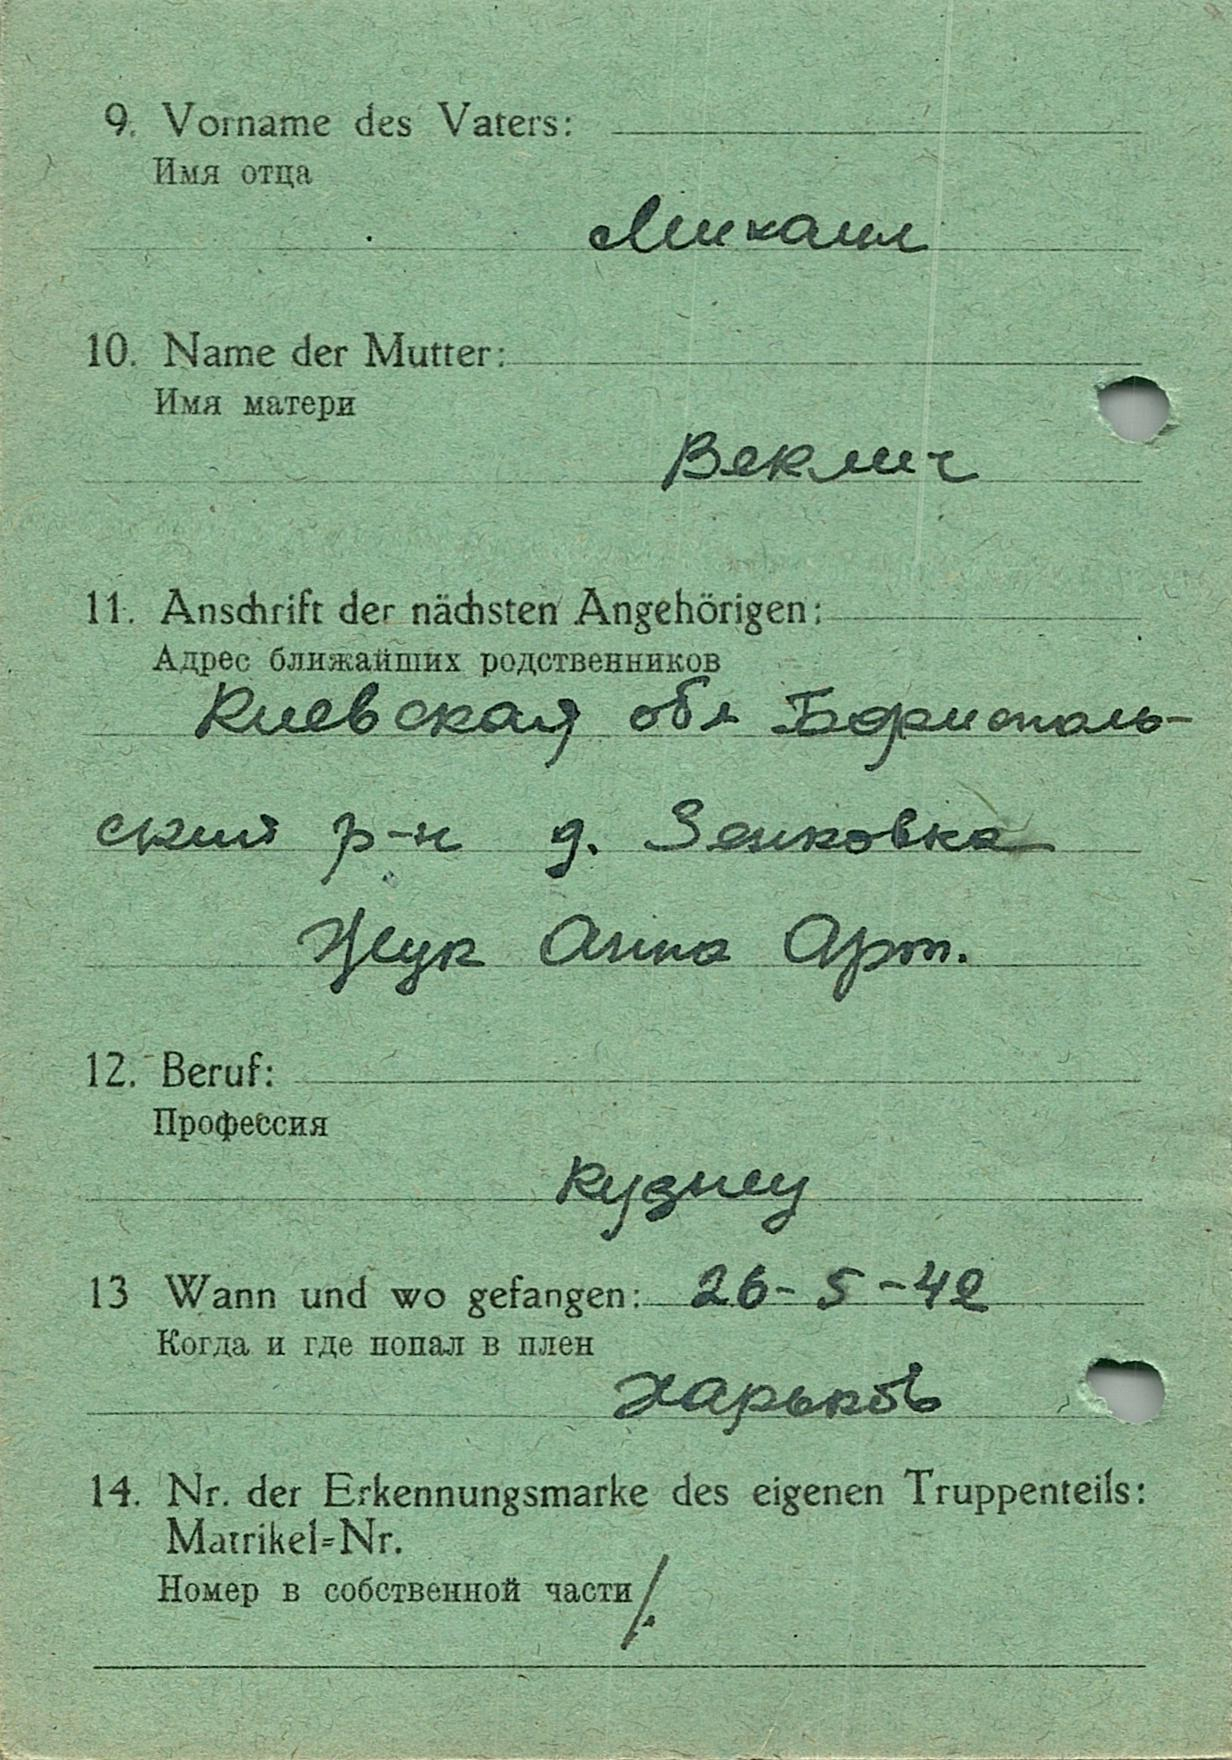 9. Vorname des Vaters:
Имя отца
Михаил
10. Name der Mutter:
Имя матери
Веклич
11. Anschrift der nächsten Angehörigen:
Адрес ближайших родственников
Киевская обл Борисполь-
ский р-н д. Зенковка
Жук Анна Арт.
12. Beruf:
Профессия
кузнец
13 Wann und wo gefangen: 26-5-42
Когда и где попал в плен
Харьков
14. Nr. der Erkennungsmarke des eigenen Truppenteils:
Matrikel=Nr.
Номер в собственной части ./.